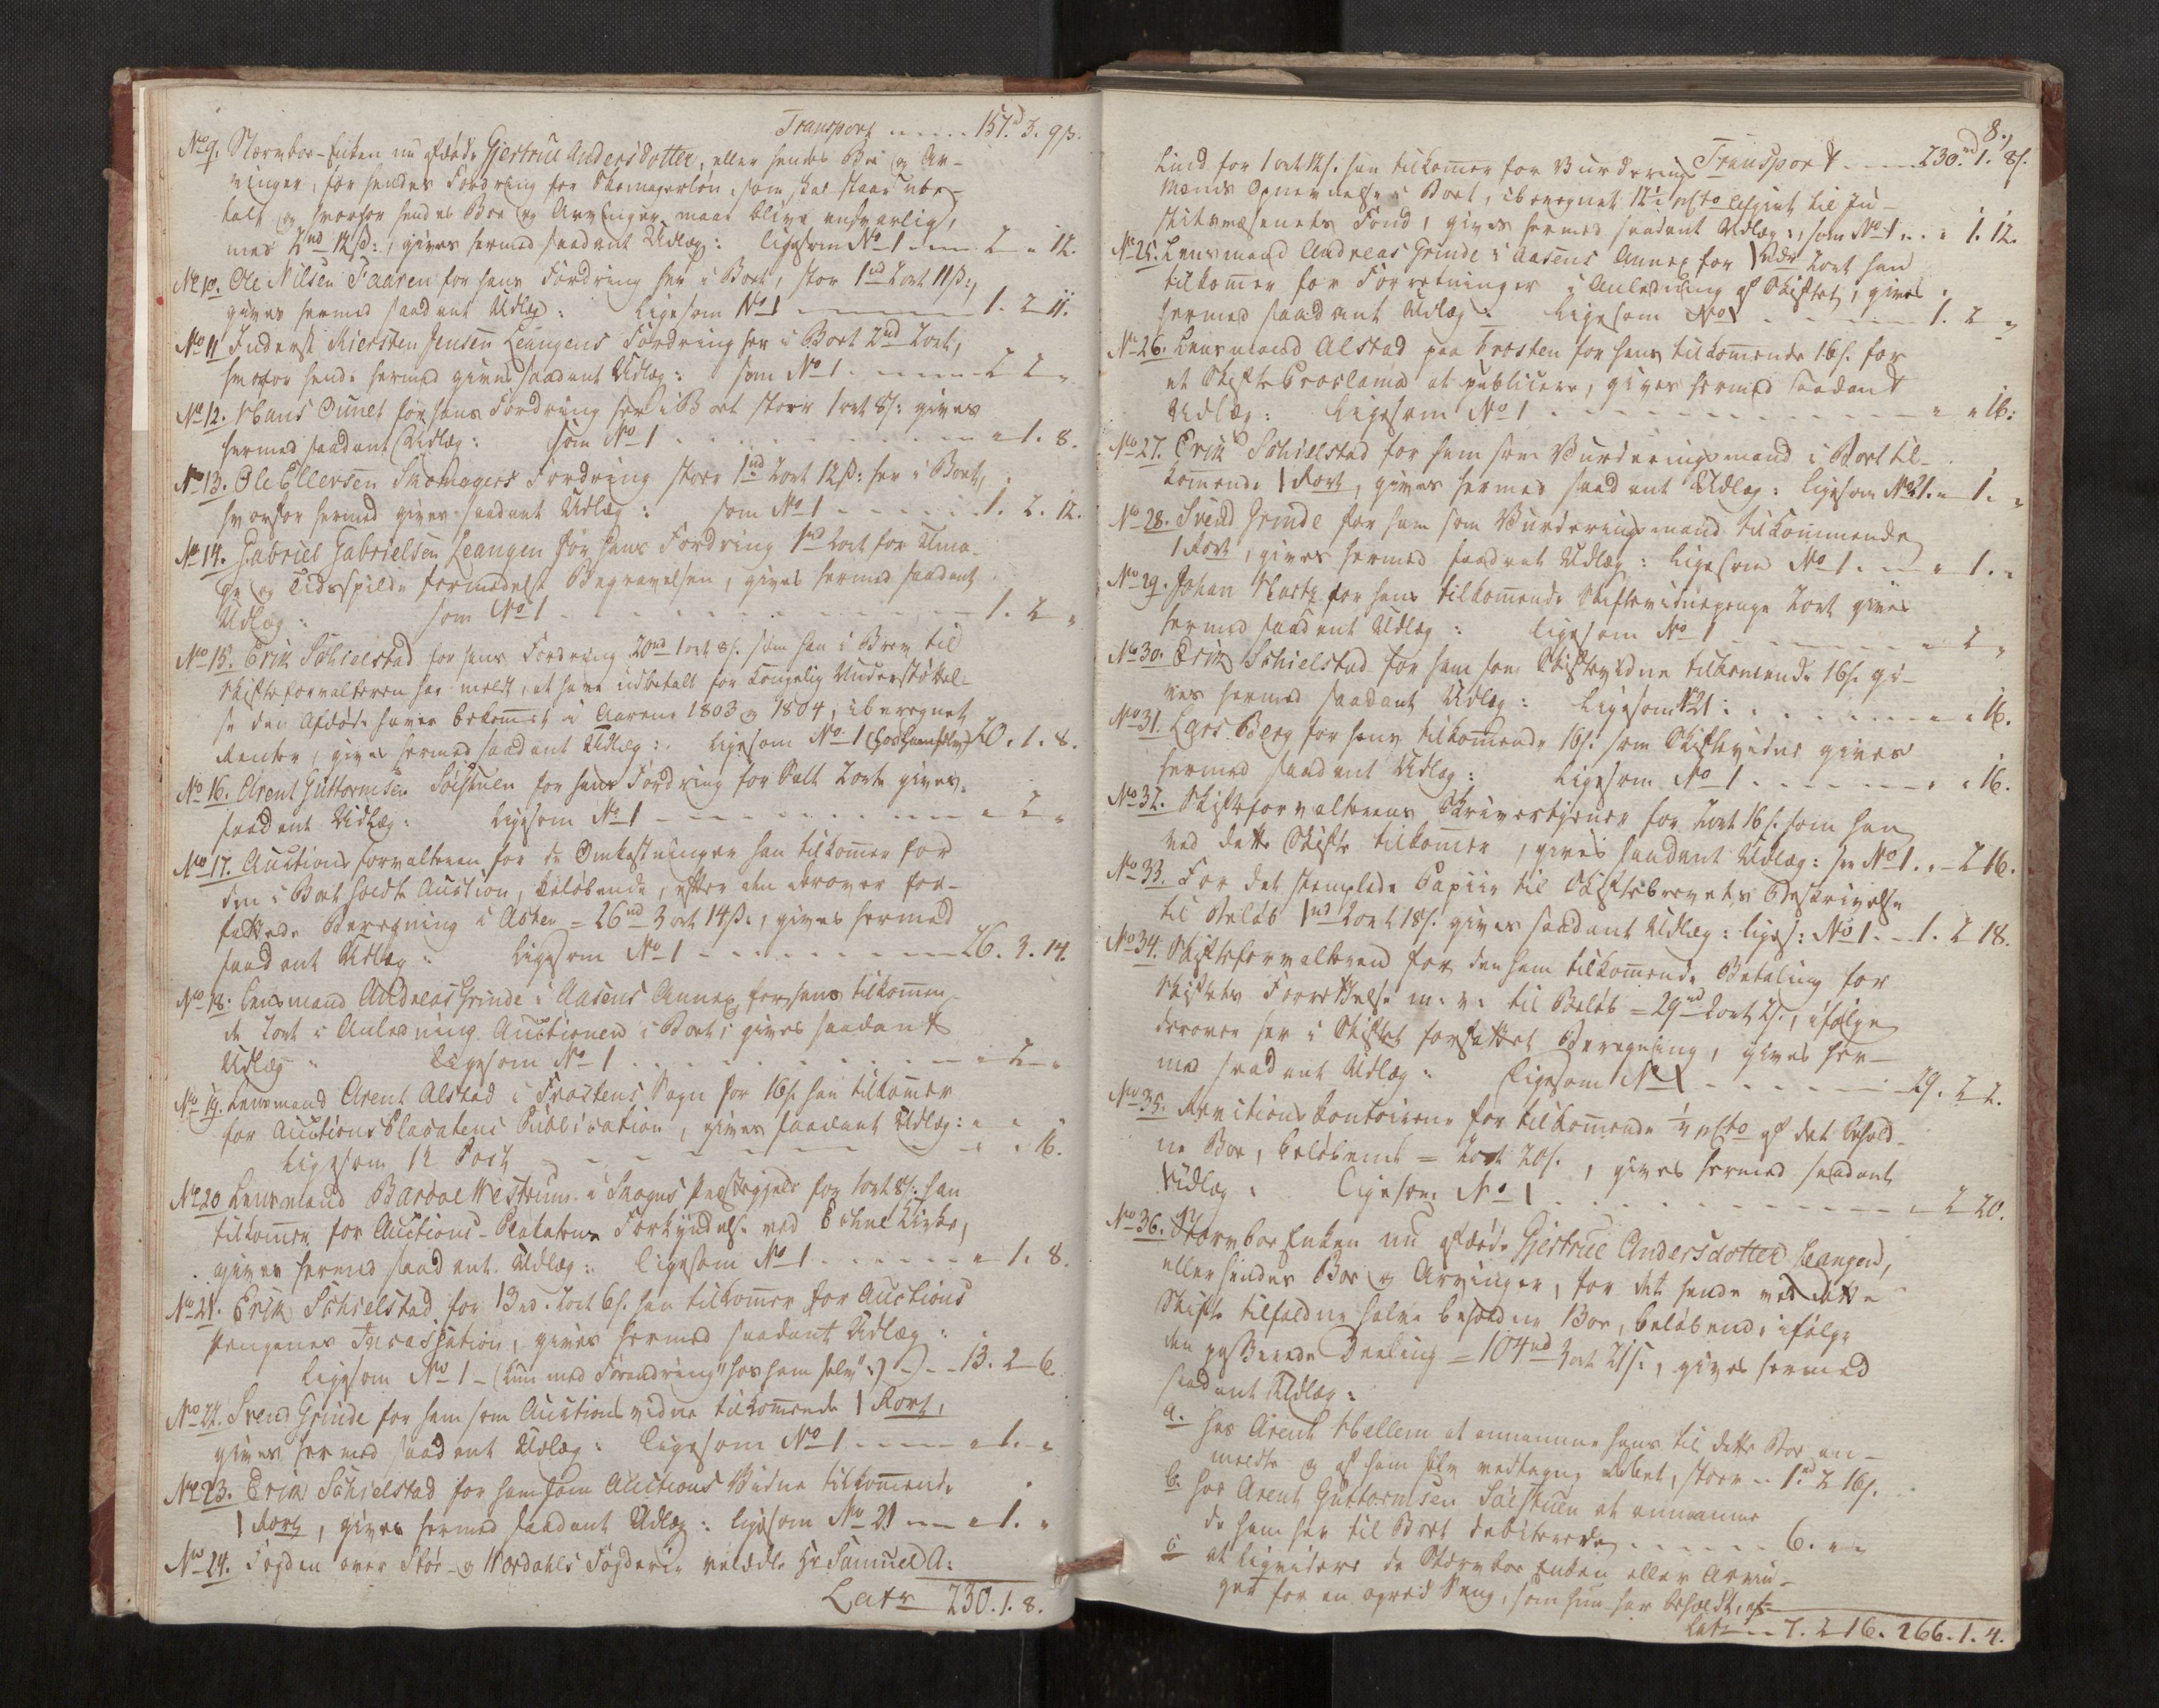 Transport - - - - - 157.d 3. 9ß.
No 9. Stervboe-Enken nu afdøde Gjertrue Andersdotter, eller hendes Boe og Ar-
vinger, for hendes Fordring for Skomagerløn, som skal staae ube-
talt og hvorfor hendes Boe og Arvinger maae blive ansvarlig,
med 2nd 12ß:, gives hermed saadant Udlæg: ligesom No 1 - - - 2 " 12.
No 10. Ole Nilsen Faaren for hans Fordring her i Boet, stor 1nd 2ort 11ß:,
gives hermed saadant Udlæg: ligesom No 1 - - - - - 1. 2 11.
No 11 Inderst Kiersten Jensen Leangens Fordring her i Boet 2nd 2ort,
hvorfor hende hermed gives saadant Udlæg: som No 1 - - - - - 2 2 "
No 12. Hans Ounet for hans Fordring her i Boet stor 1ort 8s: gives
hermed saadant Udlæg: som No 1 - - - - - " 1. 8.
No 13. Ole Ellersen Skomagers Fordring stor 1nd 2ort 12ß: her i Boet,
hvorfor hermed gives saadant Udlæg: som No 1 - - - - - 1. 2. 12.
No 14. Gabriel Gabrielsen Leangen for hans Fordring 1nd 2ort for Uma-
ge og Tidsspilde formedelst Begravelsen, gives hermed saadant
Udlæg: som No 1 - - - - - 1. 2 "
No 15. Erik Schielstad for hans Fordring 20nd 1ort 8s. som han i Brev til
Skifteforvalteren har meldt, at have udbetalt for Kongelig Understøttel-
se den Afdøde haver bekommet i Aarene 1803 og 1804, iberegnet
Renter, gives hermed saadant Udlæg: ligesom No 1 (hos ham selv) 20. 1. 8.
No 16. Arent Guttormsen Soestuen for hans Fordring for Salt 2ort gives
saadant Udlæg: ligesom No 1 - - - - - " 2 "
No 17. Auctionsforvalteren for de Omkostninger han tilkommer for
den i Boet holdte Auction, beløbende, efter den derover for-
fattede Beregning i Acten = 26nd 3ort 14ß:, gives hermed
saadant Udlæg: ligesom No 1 - - - - - 26. 3. 14.
No 18. Lensmand Andreas Grinde i Aasens Annex for hans tilkommen-
de 2ort i Anledning Auctionen i Boet, gives saadant
Udlæg: ligesom No 1 - - - - - " 2 "
No 19. Lensmand Arent Alstad i Frostens Sogn for 16s. han tilkommer
for Auctions Placatens Publication, gives saadant Udlæg:
ligesom 12 Post - - - - - " " 16.
No 20 Lensmand Bardoe Westrum i Skognes Præstegjeld for 1ort 8s: han
tilkommer for Auctions-Plakatens Forkyndelse ved Echne Kirke,
gives hermed saadant Udlæg: ligesom No 1 - - - - - " 1. 8.
No 21. Erik Schielstad for 13nd. 2ort 6s. han tilkommer for Auctions
Pengenes Incassation, gives hermed saadant Udlæg:
ligesom No 1 - (kun med Forandring "hos ham selv":) - - 13. 2 6.
No 22. Svend Grinde for ham som Auctionsvidne tilkommende 1 Rort,
gives hermed saadant Udlæg: ligesom No 1 - - - - " 1. "
No 23. Erik Schielstad for ham som Auctions Vidne tilkommende
1 Rort, gives hermed saadant Udlæg: ligesom No 21 - - " 1. "
No 24. Fogden over Stør- og Wærdahls Fogderie velædle Hr Samuel A:
Latr 230. 1. 8.
8.
Transport - - - - 230.nd 1. 8s.
Lind for 1ort 12s. han tilkommer for Vurderings
Mænds Opnevnelse i Boet, iberegnet 12½ pCto Afgivt til Ju-
stitsvæsenets Fond, gives hermed saadant Udlæg:, som No 1 - - " 1. 12.
No 25. Lensmand Andreas Grinde i Aasens Annex for 1Rdr 2ort han
tilkommer for Forretninger i Anledning af Skiftet, gives
hermed saadant Udlæg: ligesom No 1 - - - - - 1. 2 "
No 26. Lensmand Alstad paa Frosten for hans tilkommende 16s. for
et Skifte Proclama at publicere, gives hermed saadant
Udlæg: ligesom No 1 - - - - - " " 16:
No 27. Erik Schielstad for ham som Vurderingsmand i Boet til-
kommende 1 Rort, gives hermed saadant Udlæg: ligesom No 21. " 1. "
No 28. Svend Grinde for ham som Vurderingsmand tilkommende
1 Rort, gives hermed saadant Udlæg: ligesom No 1 - - " 1. "
No 29. Johan for hans tilkommende Skiftevidnepenge 2ort gives
hermed saadant Udlæg: ligesom No 1 - - - - - " 2 "
No 30. Erik Schielstad for ham som Skiftevidne tilkommende 16s. gi-
ves hermed saadant Udlæg: ligesom No 21: - - - - - " " 16.
No 31. Lars Berg for hans tilkommende 16s. som Skiftevidne gives
hermed saadant Udlæg: ligesom No 1 - - - - - " " 16.
No 32. Skifteforvalterens Skriverstjener for 2ort 16s. som han
ved dette Skifte tilkommer, gives saadant Udlæg: som No 1. " 2 16.
No 33. For det stemplede Papiir til Skiftebrevets Beskrivelse
til Beløb 1nd 2ort 18s. gives saadant Udlæg: liges: No 1 - - 1. 2 18.
No 34. Skifteforvalteren for den ham tilkommende Betaling for
Skiftets Forrettelse m: v: til Beløb = 29nd 2ort 2s., ifølge
derover her i Skiftet forfattet Beregning, gives her-
med saadant Udlæg: ligesom No 1 - - - - - 29. 2 2.
No 35. Revitions Contoirene for tilkommende ¼ pCto af det behold-
ne Boe, beløbende = 2ort 20s., gives hermed saadant
Udlæg: ligesom No 1 - - - - - " 2 20.
No 36. Stervboe Enken nu afdøde Gjertrue Andersdotter Leangen,
eller hendes Boe og Arvinger, for det hende ved dette
Skifte tilfaldne halve beholdne Boe, beløbende, ifølge
den passerede Deeling = 104nd 3ort 21s:, gives hermed
saadant Udlæg:
a. hos Arent Hellem at annamme hans til dette Boe an-
meldte og af ham selv vedtagne Debet, stor - - 1.nd 2 16s.
b. hos Arent Guttormsen Soestuen at annamme
de ham her til Boet debiterede - - - - - 6. " "
c at liqvidere de Stervboe Enken eller Arvin-
ger for en opred Seng, som hun har beholdt, af-
Latr - - 7. 2 16. 266. 1. 4.